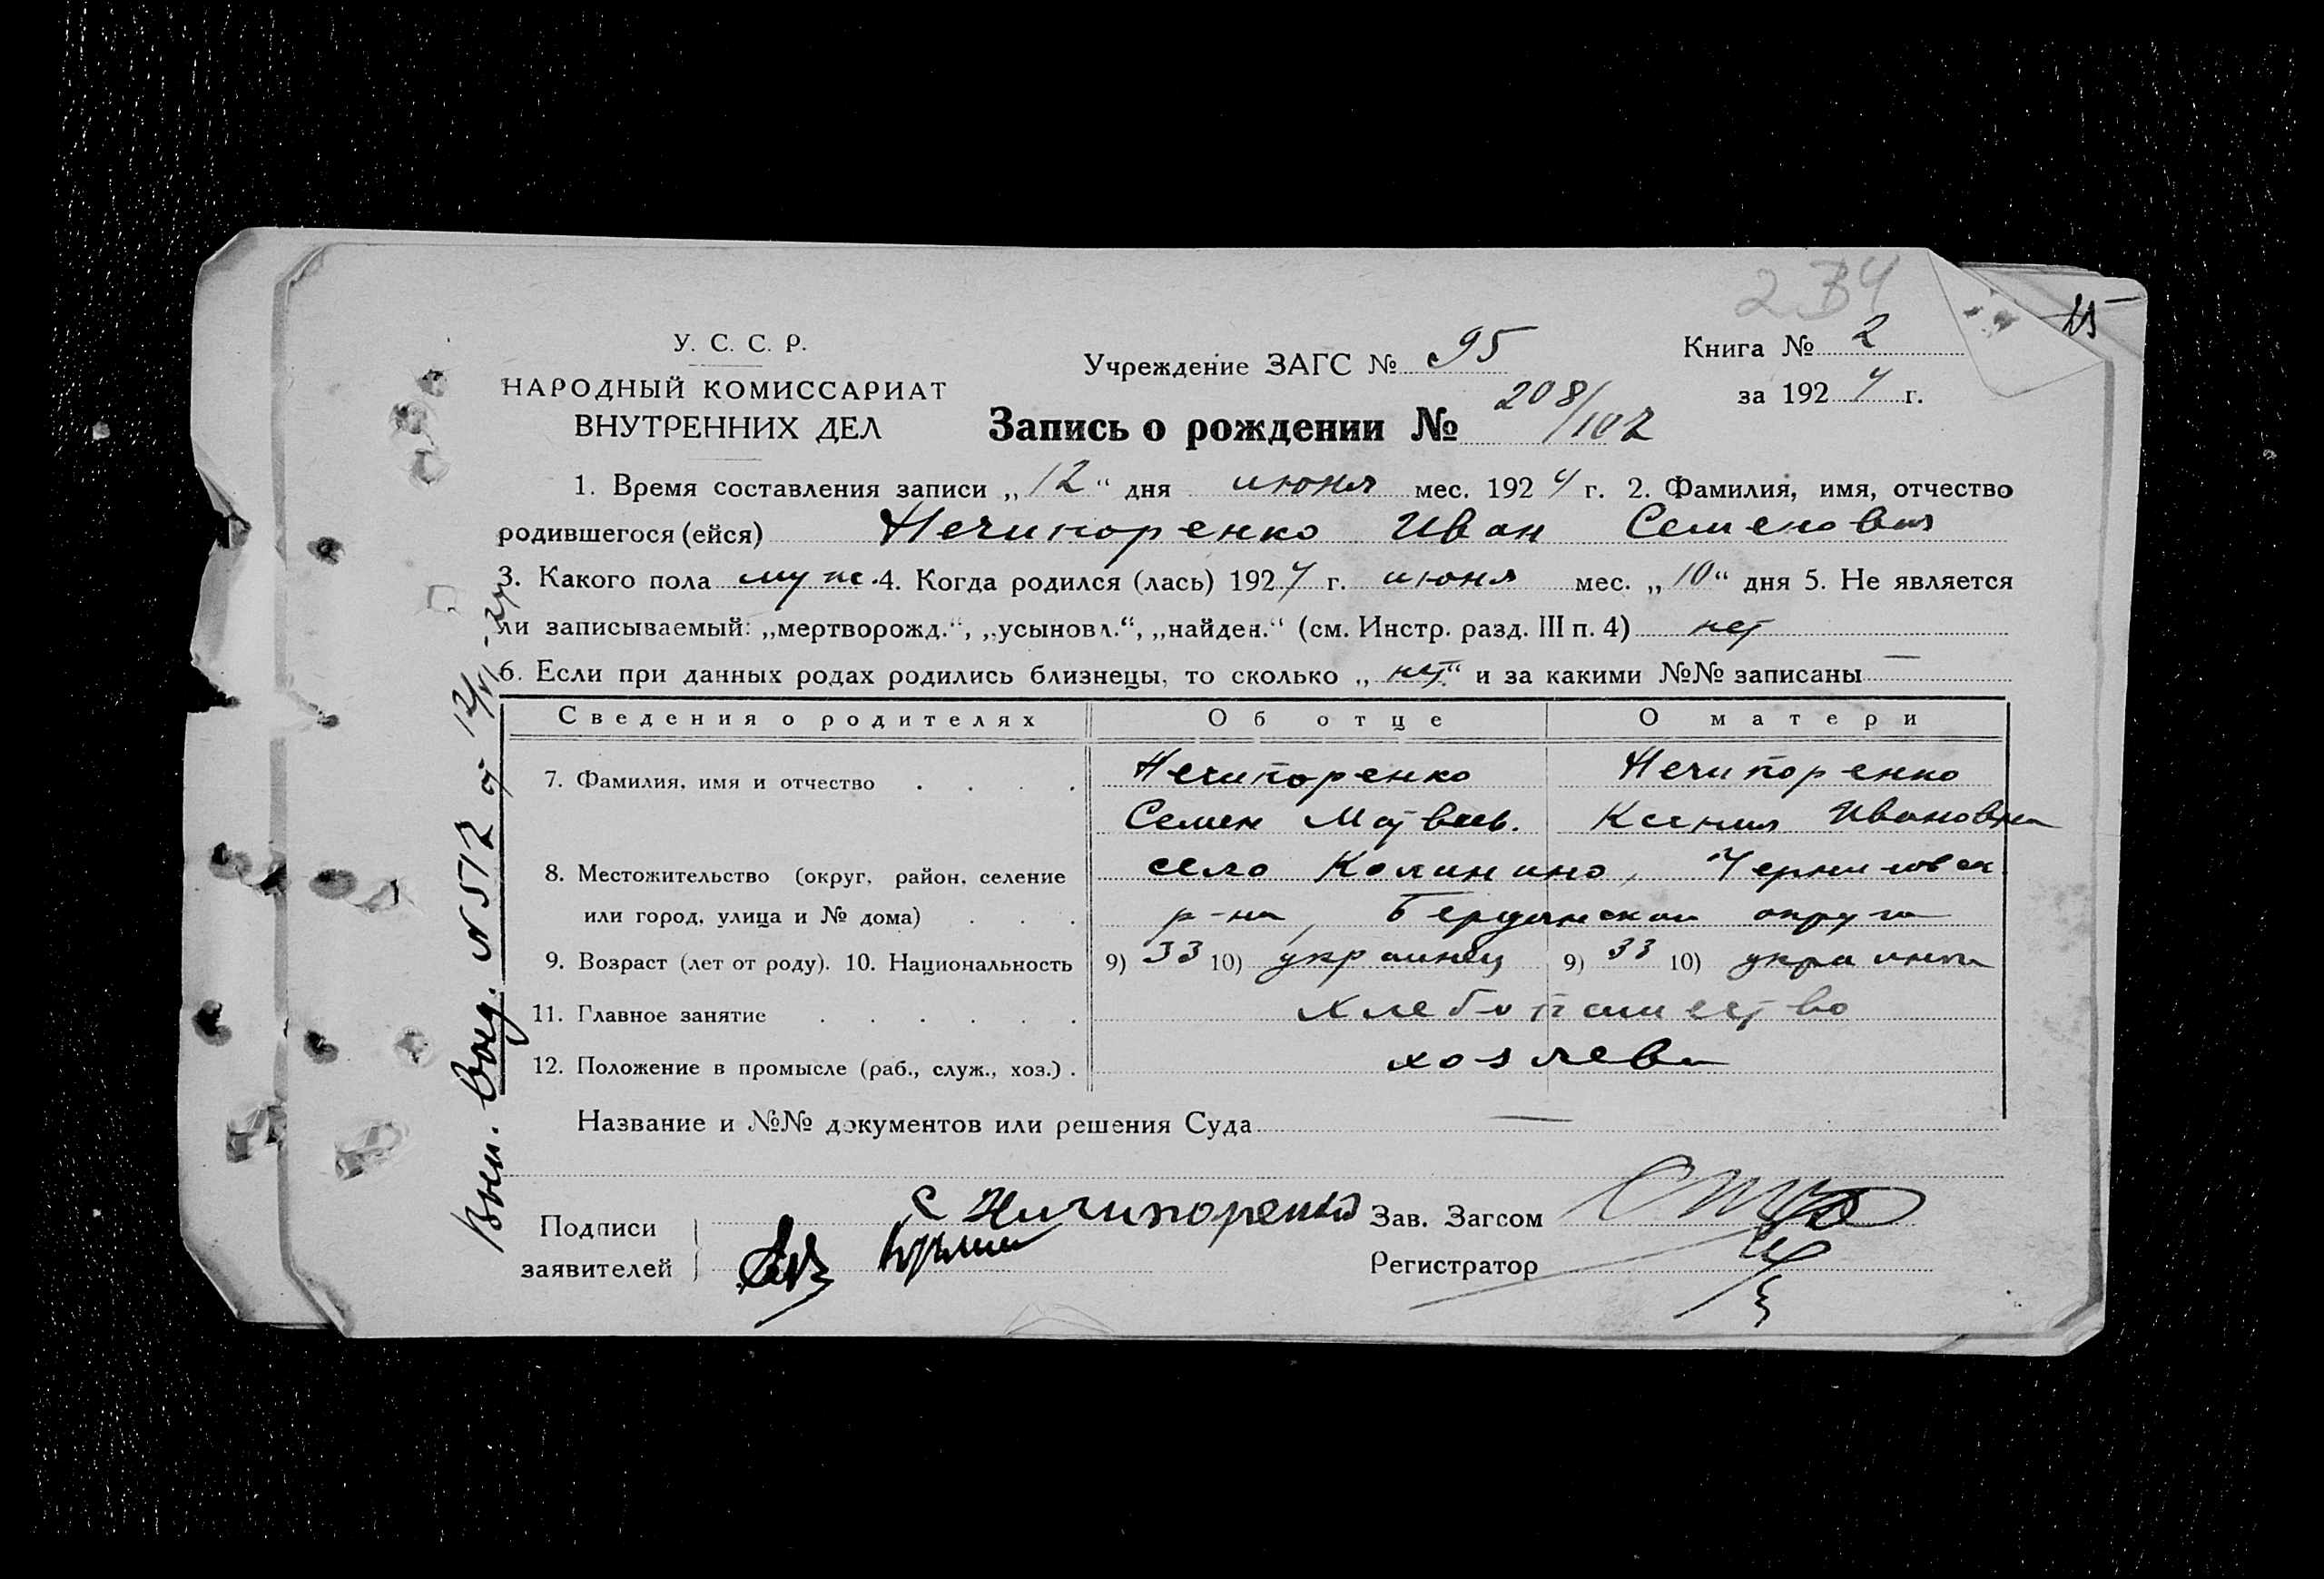 234
15
У. С. С. Р.
НАРОДНЫЙ КОМИССАРИАТ
ВНУТРЕННИХ ДЕЛ
Учреждение ЗАГС № 95
Книга № 2
за 1924 г.
Запись о рождении № 208/102
1. Время составления записи „12“ дня июня мес. 1924 г. 2. Фамилия, имя, отчество
родившегося (ейся) Нечипоренко Иван Семенович
3. Какого пола муж. 4. Когда родился (лась) 1924 г. июня мес. „10“ дня 5. Не является
ли записываемый: „мертворожд.“, „усыновл.“, „найден.“ (см. Инстр. разд. III п. 4) нет
6. Если при данных родах родились близнецы, то сколько „нет“ и за какими №№ записаны —
Сведения о родителях Об отце О матери
7. Фамилия, имя и отчество . . . . Нечипоренко Нечипоренко
Семен Матвеев. Ксения Ивановна
8. Местожительство (округ, район, селение село Калинино,
или город, улица и № дома) . . . р-на, Бердянской округи
9. Возраст (лет от роду). 10. Национальность 9) 33 10) украинец 9) 33 10) украинка
11. Главное занятие . . . . . . хлебопашество
12. Положение в промысле (раб., служ., хоз.) . хозяева
Название и №№ документов или решения Суда —
Подписи
заявителей
С Ничипоренко
Зав. Загсом
Регистратор
№ 512 от 12/VI-24